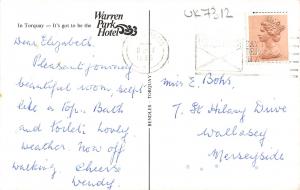 In Torquay — It's got to be the
Warren
Park
Hotel
UK7312
Dear Elizabeth,
Pleasant journey
beautiful room, slept
like a top. Bath
and toilet: lovely
weather. Now off
walking. Cheers
Wendy.
BENDLES TORQUAY
Miss E. Bohs,
7 St Hilary Drive
Wallasey
Merseyside